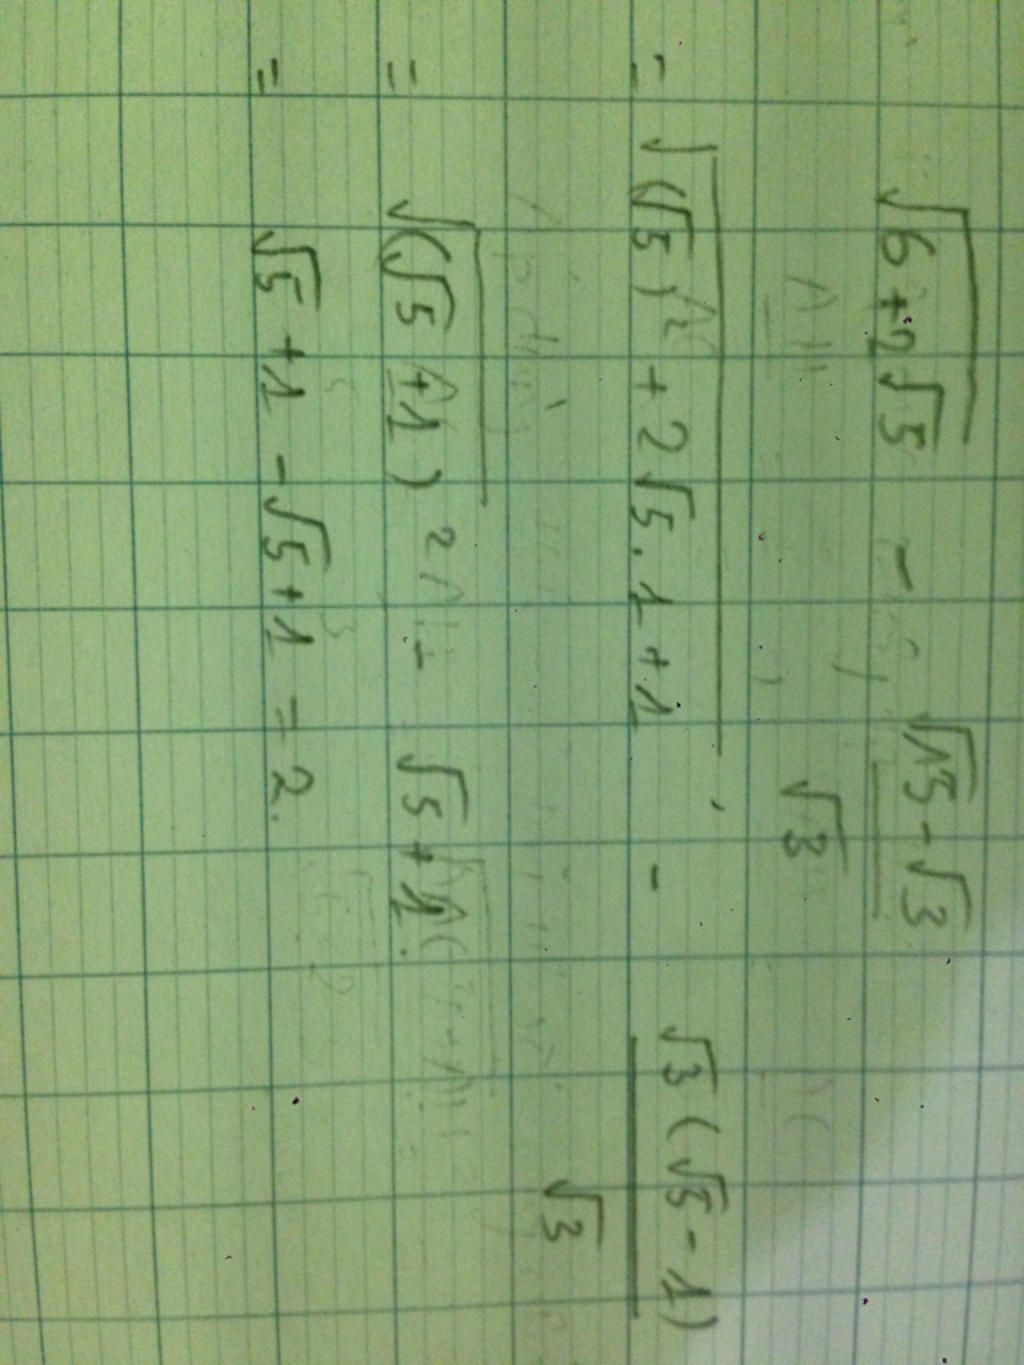 √(6+2√5) - (√15-√3)/√3
= √((√5)² + 2√5.1+1) - (√3(√5-1))/√3
= √((√5+1)²) - √5+1.
= √5+1-√5+1 = 2.